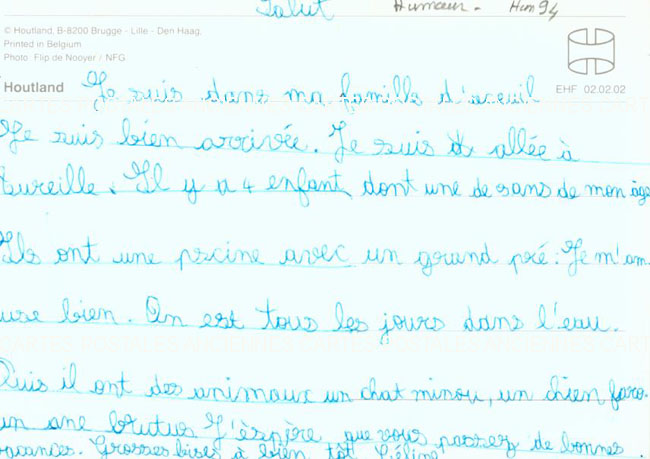 Salut Humour - Hum 94
© Houtland, B-8200 Brugge - Lille - Den Haag.
Printed in Belgium
Photo: Flip de Nooyer / NFG
Houtland
EHF 02.02.02
Je suis dans ma famille d'aceuil
Je suis bien arrivée. Je suis allée à
Eureille. Il y a 4 enfant dont une de sans de mon âge
Ils ont une piscine avec un grand pré. Je m'am
use bien. On est tous les jours dans l'eau.
CARTES POSTALES ANCIENNES CARTES POSTALES ANCIENNES
Puis il ont des animaux un chat minou, un chien faro.
un ane brutus J'éspère que vous passez de bonnes
vacances. Grosses bises à bien tôt Céline